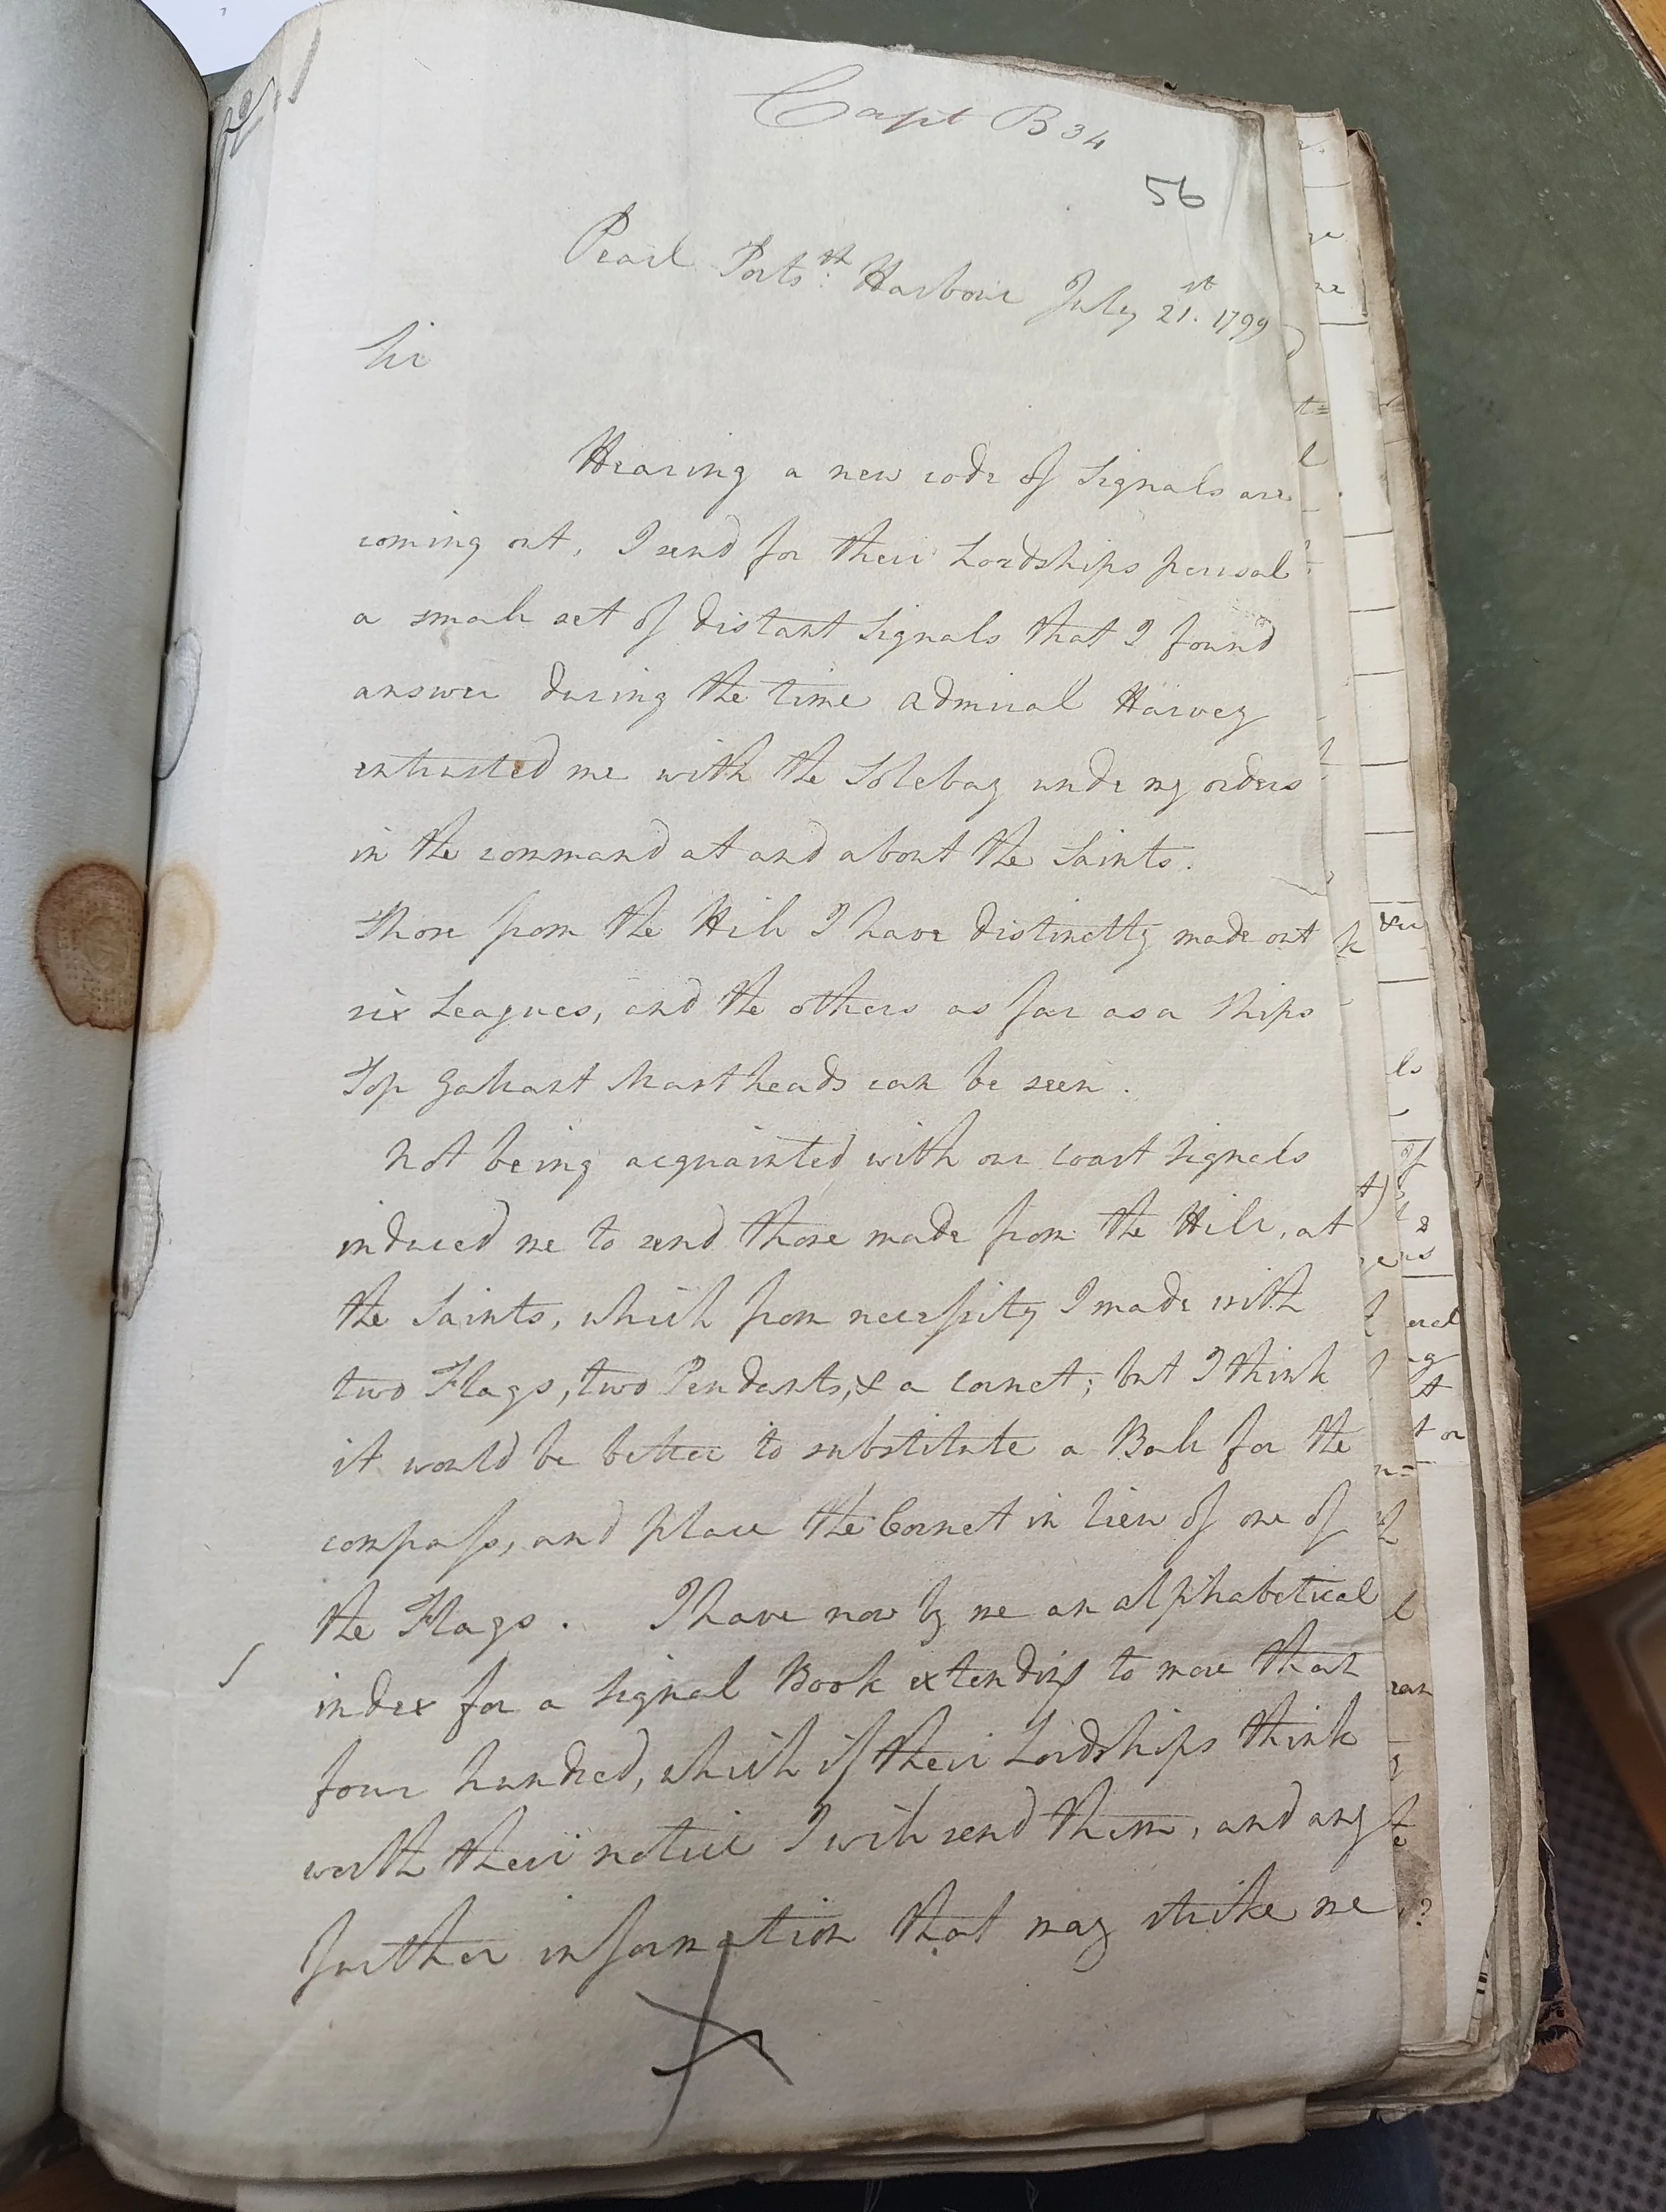 Capt B 34
56
Pearl Ports.th Harbour July 21.st 1799
Sir
Hearing a new code of Signals are
coming out, I send for their Lordships perusal
a small set of distant Signals that I found
answer during the time Admiral Harvey
entrusted me with the Solebay unde my orders
in the command at and about the Saints.
Those from the Hill I have distinctly made out
six Leagues, and the others as far as a Ships
Top Gallant Mast heads can be seen.
Not being acquainted with our coast Signals
induced me to send those made from the Hill, at
the Saints, which from necessity I made with
two Flags, two Pendants, & a cornet; but I think
it would be better to substitute a Ball for the
compass, and place the Cornet in lieu of one of
the Flags. I have now by me an alphabetical
index for a Signal Book extending to more than
four hundred, which if their Lordships think
worth their notice I will send them, and any
further information that may strike me